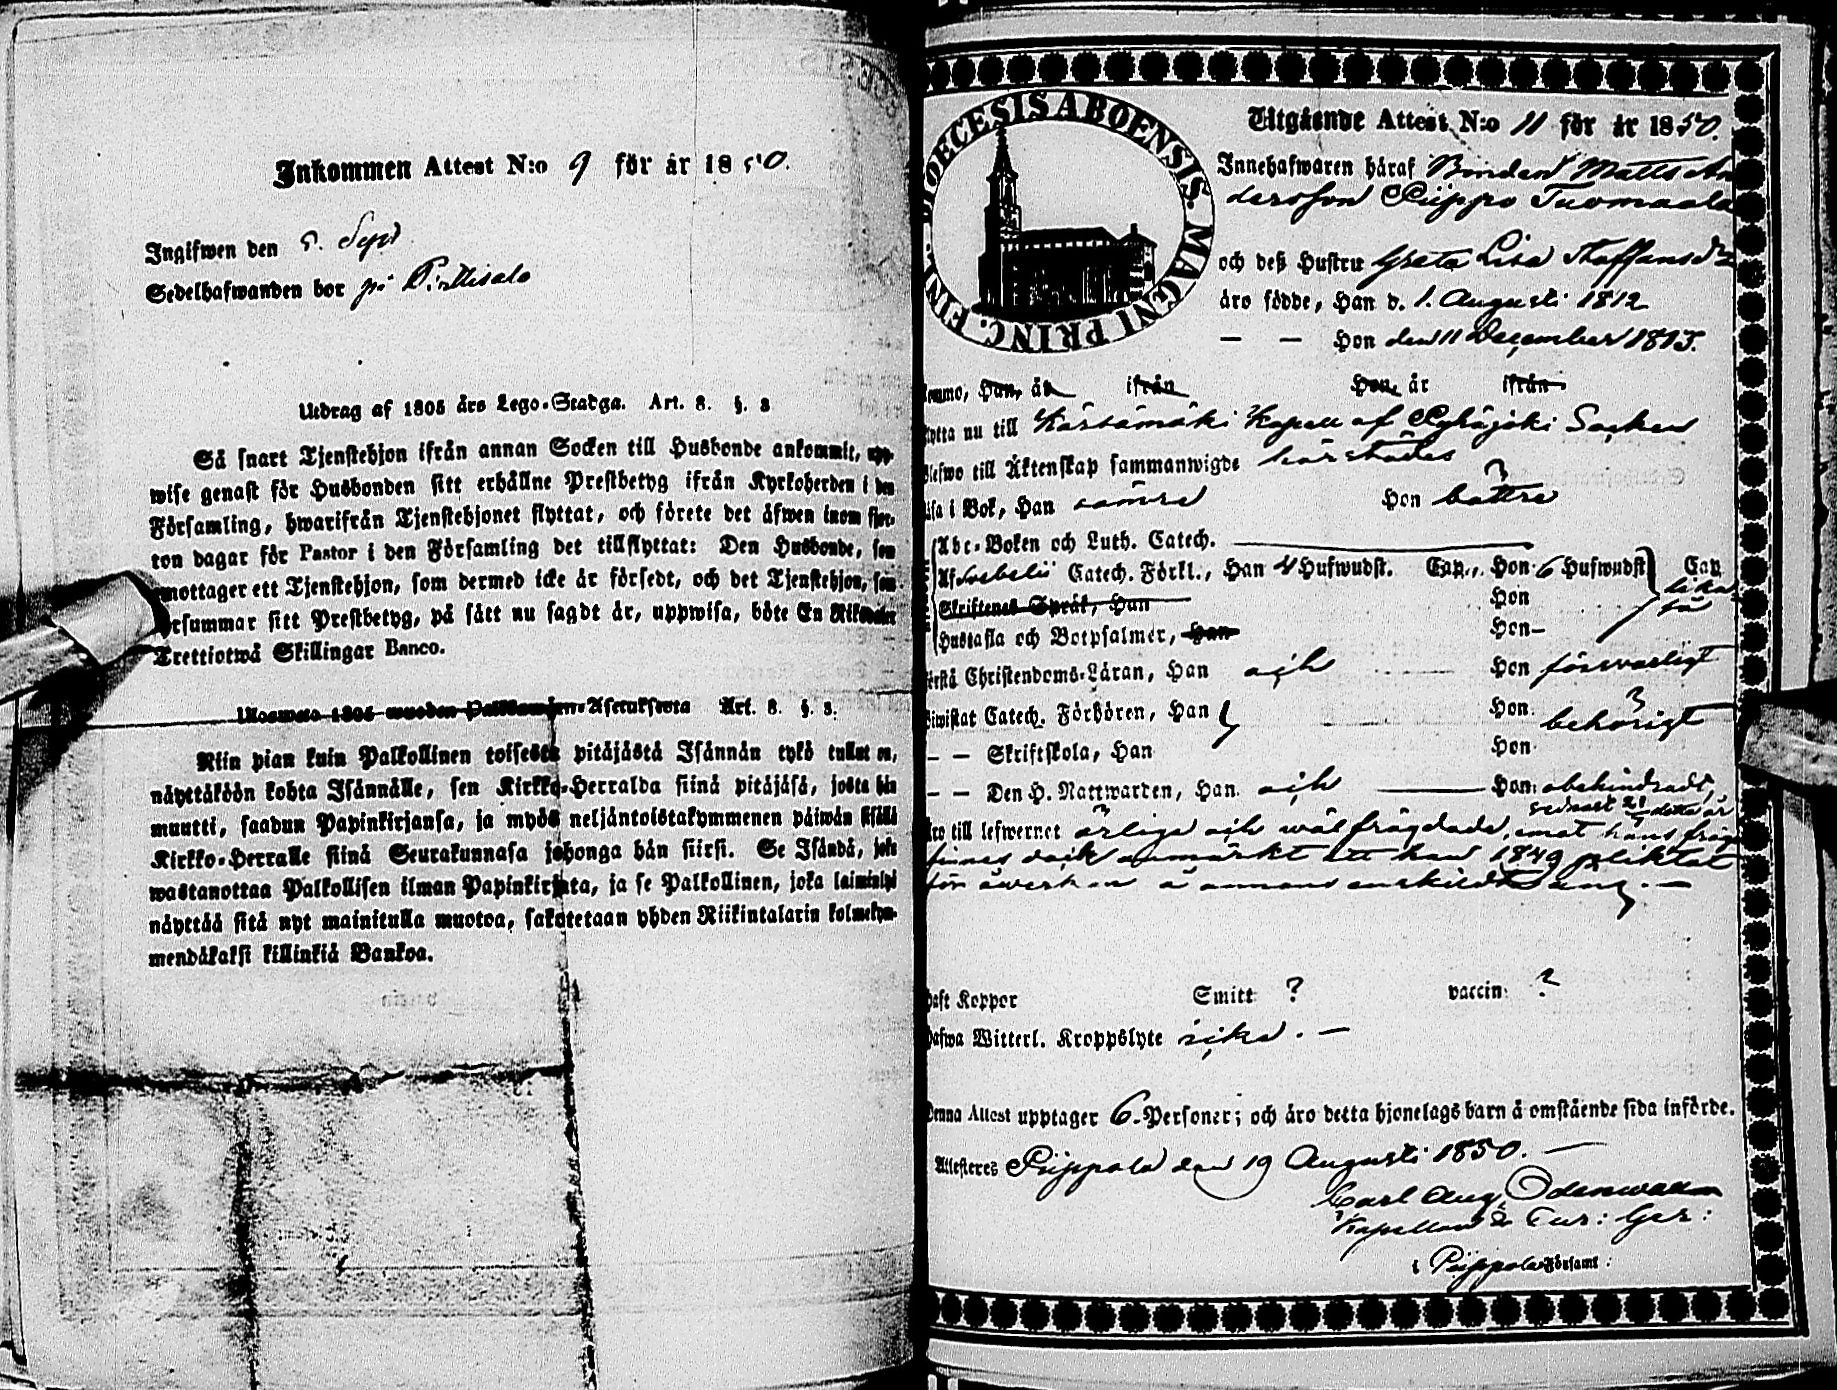 Inkommen Attest N:o 9 för år 1850.
Ingifwen den 5. Sept
Sedelhafwanden bor på Pirttisalo
Utdrag af 1805 års Lego-Stadga. Art. 8. §. 3
Så snart Tjenstehjon ifrån annan Socken till Husbonde ankommit, upp-
wise genast för Husbonden sitt erhållne Prestbetyg ifrån Kyrkoherden i den
Församling, hwarifrån Tjenstehjonet flyttat, och förete det äfwen inom fjor-
ton dagar för Pastor i den Församling det tillflyttat: Den Husbonde, som
emottager ett Tjenstehjon, som dermed icke är försedt, och det Tjenstehjon, som
försummar sitt Prestbetyg, på sätt nu sagdt är, uppwisa, böte En Riksdaler
Trettiotwå Skillingar Banco.
Ulosweto 1805 wuoden Palkkawäen-Asetuksesta Art. 8. §. 3.
Niin pian kuin Palkollinen toisesta pitäjästä Isännän tykö tullut on,
näyttäköön kohta Isännälle, sen Kirkko-Herralda siinä pitäjäsä, josta hän
muutti, saadun Papinkirjansa, ja myös neljäntoistakymmenen päiwän sisällä
Kirkko-Herralle siinä Seurakunnasa johonga hän siirsi. Se Isändä, joka
wastanottaa Palkollisen ilman Papinkirjata, ja se Palkollinen, joka laiminlyö
näyttää sitä nyt mainitulla muotoa, sakotetaan yhden Riikintalarin kolmekym-
mendäkaksi killinkiä Bankoa.
DIOECESIS ABOENSIS. MAGNI PRINC. FINL.
Utgående Attest N:o 11 för år 1850.
Innehafwaren häraf Bonden Matts An
dersson Piippo Tuomaala
och deß Hustru Greta Lisa Staffansdr
äro födde, Han d. 1. Augusti 1812
— — Hon den 11 December 1815.
komne, Han, är ifrån Hon, är ifrån
flytta nu till Kärsämäki Kapell af Pyhäjoki Socken
Blefwo till Äktenskap sammanwigde härstädes
Läsa i Bok, Han sämre Hon bättre
Abc-Boken och Luth. Catech.
Af Svebelii Catech. Förkl., Han 4 Hufwudst. Cap., Hon 6 Hufwudst Cap
Skriftenes Språk, Han Hon lika
så
Hustafla och Botpsalmer, Han Hon
Förstå Christendoms-Läran, Han och Hon försvarligt
Biwistat Catech. Förhören, Han Hon behörigt
— — Skriftskola, Han Hon
— — Den H. Nattwarden, Han och Hon obehindradt,
äro till lefwernet ärliga och wälfrägdade, emot hans frägd
finnes dock anmärkt att han 1849 pliktat
för åwerkan å annans enskildt äng. —
haft Koppor Smitt ? vaccin: ?
hafwa Witterl. Kroppslyte icke. —
Denna Attest upptager 6. Personer; och äro detta hjonelags barn å omstående sida införde.
Attesteres Piippola den 19 Augusti 1850. —
Carl Aug. Odenwall
Kapellan & Cur: Ger:
i Piippola Församl: